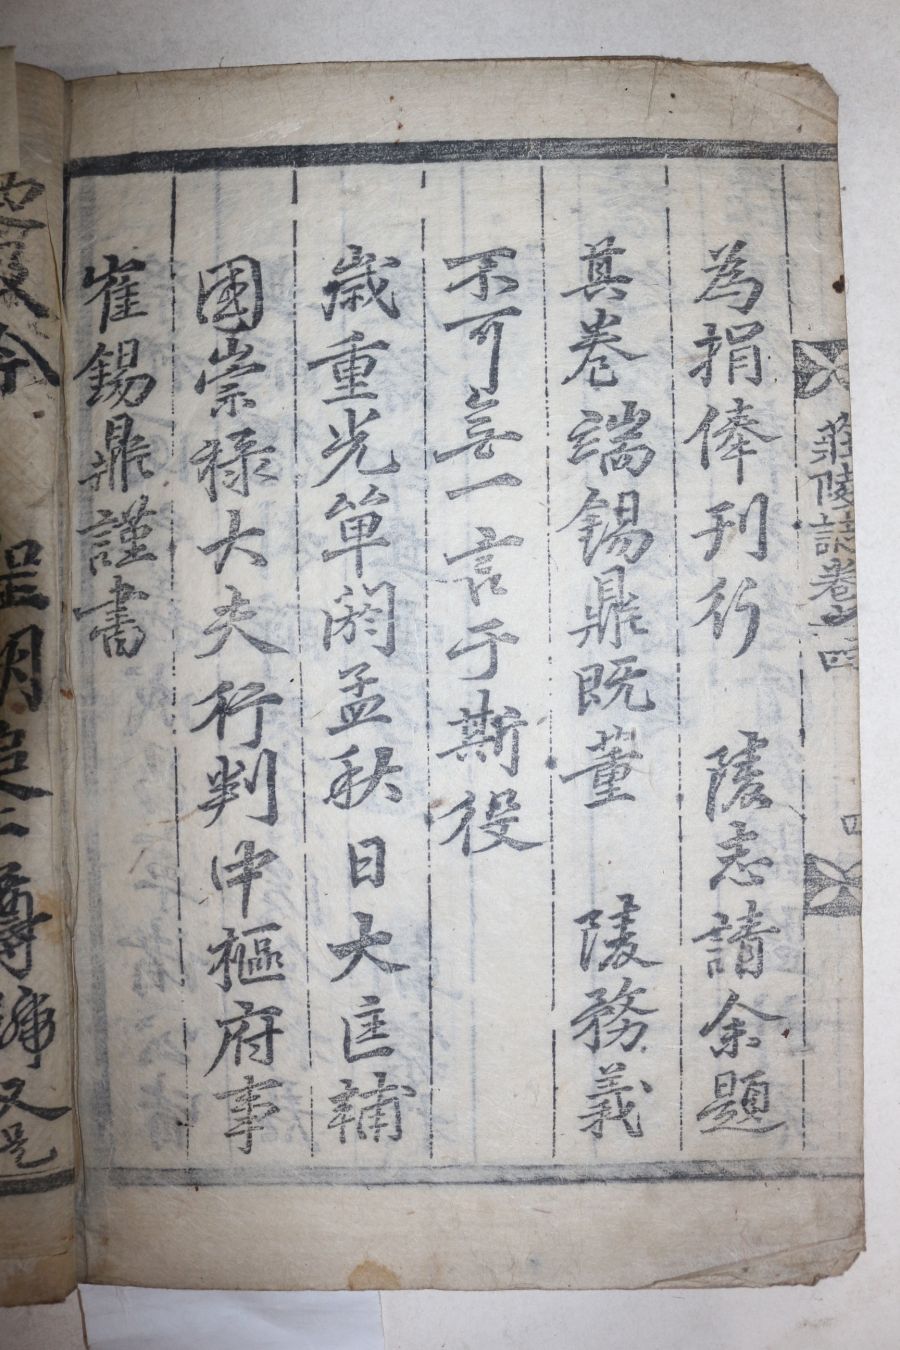 莊陵誌卷之四
四
為捐俸刊行 陵志請余題
其卷端錫鼎既董 陵務義
不可無一言于斯役
歲重光單閼孟秋日大匡輔
國崇祿大夫行判中樞府事
崔錫鼎謹書